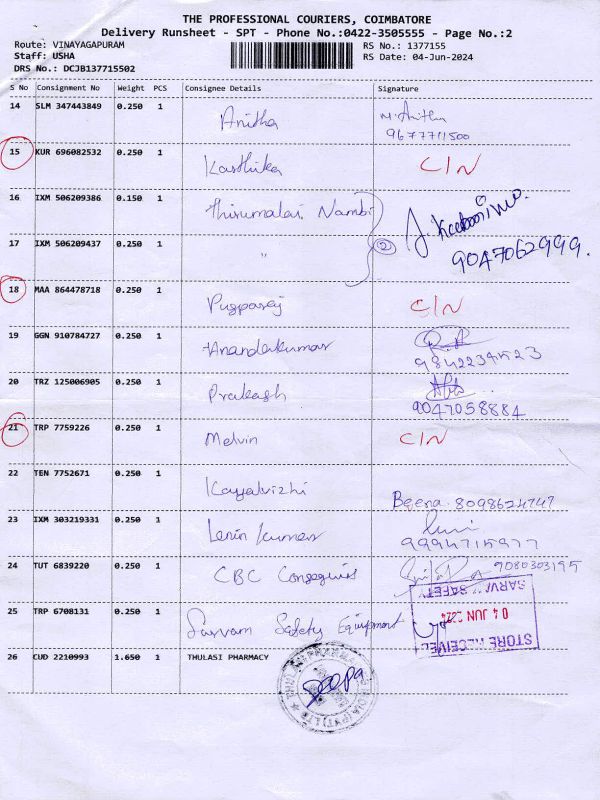 THE PROFESSIONAL COURIERS, COIMBATORE
Delivery Runsheet - SPT - Phone No.:0422-3505555 - Page No.:2
Route: VINAYAGAPURAM
RS No.: 1377155
Staff: USHA
RS Date: 04-Jun-2024
DRS No.: DCJB137715502
S No Consignment No Weight PCS Consignee Details Signature
14 SLM 347443849 0.250 1 Anitha M. Anitha
9677711500
15 KUR 696082532 0.250 1 Karthika C/N
16 IXM 506209386 0.150 1 Thirumalai Nambi
17 IXM 506209437 0.250 1 " 2
9047062999.
18 MAA 864478718 0.250 1 Pugparaj C/N
19 GGN 910784727 0.250 1 Anandakumar
9842234523
20 TRZ 125006905 0.250 1 Prakash
9047058884
21 TRP 7759226 0.250 1 Melvin C/N
22 TEN 7752671 0.250 1 Kayalvizhi Beena 8098624747
23 IXM 303219331 0.250 1 Lenin Kumar
9994715977
24 TUT 6839220 0.250 1 CBC 9080303195
25 TRP 6708131 0.250 1 Sarvam Safety Equipment
SARVAM SAFETY
04 JUN 2024
STORE RECEIVED
26 CUD 2210993 1.650 1 THULASI PHARMACY Deepa